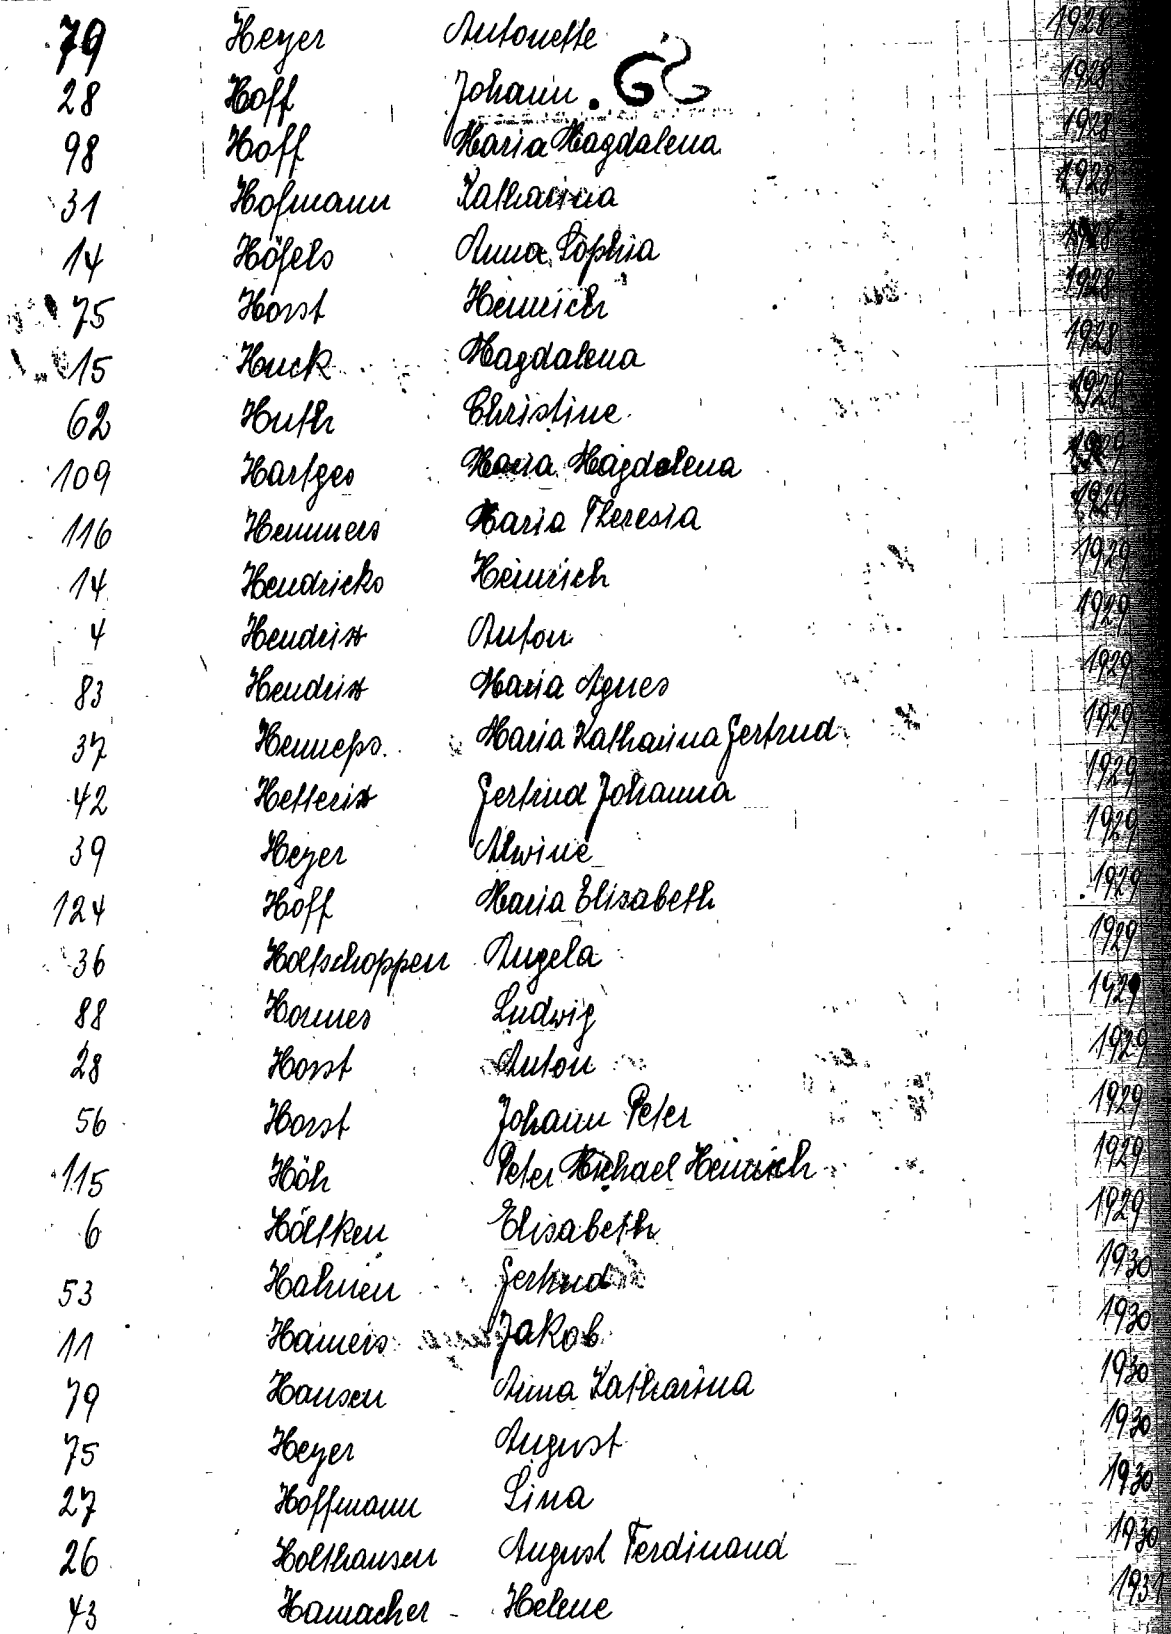 79 Heyer Antonette 1928
28 Hoff Johann 68 1928
98 Hoff Maria Magdalena 1928
31 Hofmann Katharina 1928
14 Höfels Anna Sophia 1928
75 Horst Heinrich 1928
15 Huck Magdalena 1928
62 Huth Christine 1928
109 Hartges Maria Magdalena 1929
116 Hemmers Maria Theresia 1929
14 Hendricks Heinrich 1929
4 Hendrix Anton 1929
83 Hendrix Maria Agnes 1929
37 Henneps. Maria Katharina Gertrud 1929
42 Hetterix Gertrud Johanna 1929
39 Heyer Alwine 1929
124 Hoff Maria Elisabeth 1929
36 Holtschoppen Angela 1929
88 Hormes Ludwig 1929
28 Horst Anton 1929
56 Horst Johann Peter 1929
115 Höh Peter Michael Heinrich 1929
6 Höltken Elisabeth 1929
53 Halmen Gertrud 1930
11 Hamers Jakob 1930
79 Hansen Anna Katharina 1930
75 Heyer August 1930
27 Hoffmann Lina 1930
26 Holthausen August Ferdinand 1930
43 Hamacher - Helene 1931